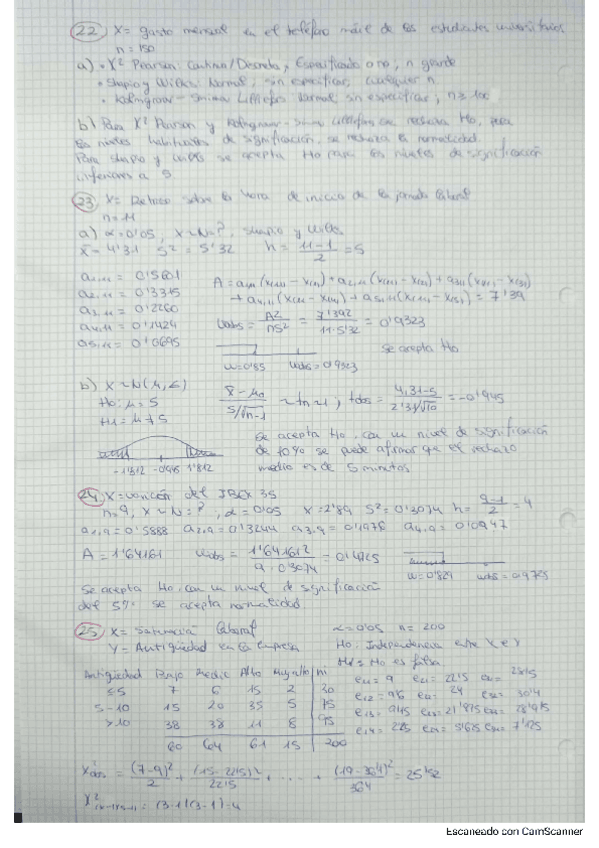 22 X = gasto mensual en el teléfono móvil de los estudiantes universitarios
n = 150
a) • X² Pearson: Continua/Discreta, Especificado o no, n grande
• Shapiro y Wilks: Normal, sin especificar, cualquier n
• Kolmogorov - Smirnov Lilliefors Normal sin especificar, n ≥ 100
b) Para X² Pearson y Kolmogorov - Smirnov Lilliefors se rechaza Ho, para
los niveles habituales de significación, se rechaza la normalidad.
Para Shapiro y Wilks se acepta Ho para los niveles de significación
inferiores a
23 X = Retraso sobre la hora de inicio de la jornada laboral
n = 11
a) α = 0'05, X ~ N = ?, Shapiro y Wilks
x̄ = 4'31 S² = 5'32 h = (11-1)/2 = 5
a1,11 = 0'5601
a2,11 = 0'3315
a3,11 = 0'2260
a4,11 = 0'1424
a5,11 = 0'0695
= 7'39
Wobs = A²/nS² = 7'39²/11·5'32 = 0'9323
Se acepta Ho
W = 0'85 Wobs = 0'9323
b) X ~ N(μ, σ)
Ho: μ = 5
H1: μ ≠ 5
x̄ - μ0 / S/√n-1 ~ tn-1; tobs = 4,31-5 / 2'31/√10 = -0'945
Se acepta Ho, con un nivel de significación
de 10% se puede afirmar que el retraso
medio es de 5 minutos
-1'812 -0'945 1'812
24 X = del IBEX 35
n = 9, X ~ N = ?, α = 0'05 x = 2'89 S² = 0'3074 h = (9-1)/2 = 4
a1,9 = 0'5888 a2,9 = 0'3244 a3,9 = 0'1976 a4,9 = 0'0947
A = 1'64161 Wobs = 1'64161²/9·0'3074
W = 0'829
Se acepta Ho, con un nivel de significación
del 5% se acepta normalidad
25 X = Satisfacción laboral α = 0'05 n = 200
Y = Antigüedad en la empresa Ho: Independencia entre X e Y
H1 = Ho es falsa
Antigüedad Bajo Medio Alto Muy alto ni
≤5 7 6 15 2 30
5 - 10 15 20 35 5 75
>10 38 38 11 8 95
60 64 61 15 200
e11 = 9 e21 = 22'5 = 28'5
e12 = 9'6 e22 = 24 e32 = 30'4
e13 = 9'15 e23 = 22'875 e33 = 28'975
e14 = 2'25 e24 = 5'625 e34 = 7'125
X²obs = (7-9)²/2 + (15-22'5)²/22'5 + ..... + = 25'52
= (3-1)(3-1) = 4
Escaneado con CamScanner